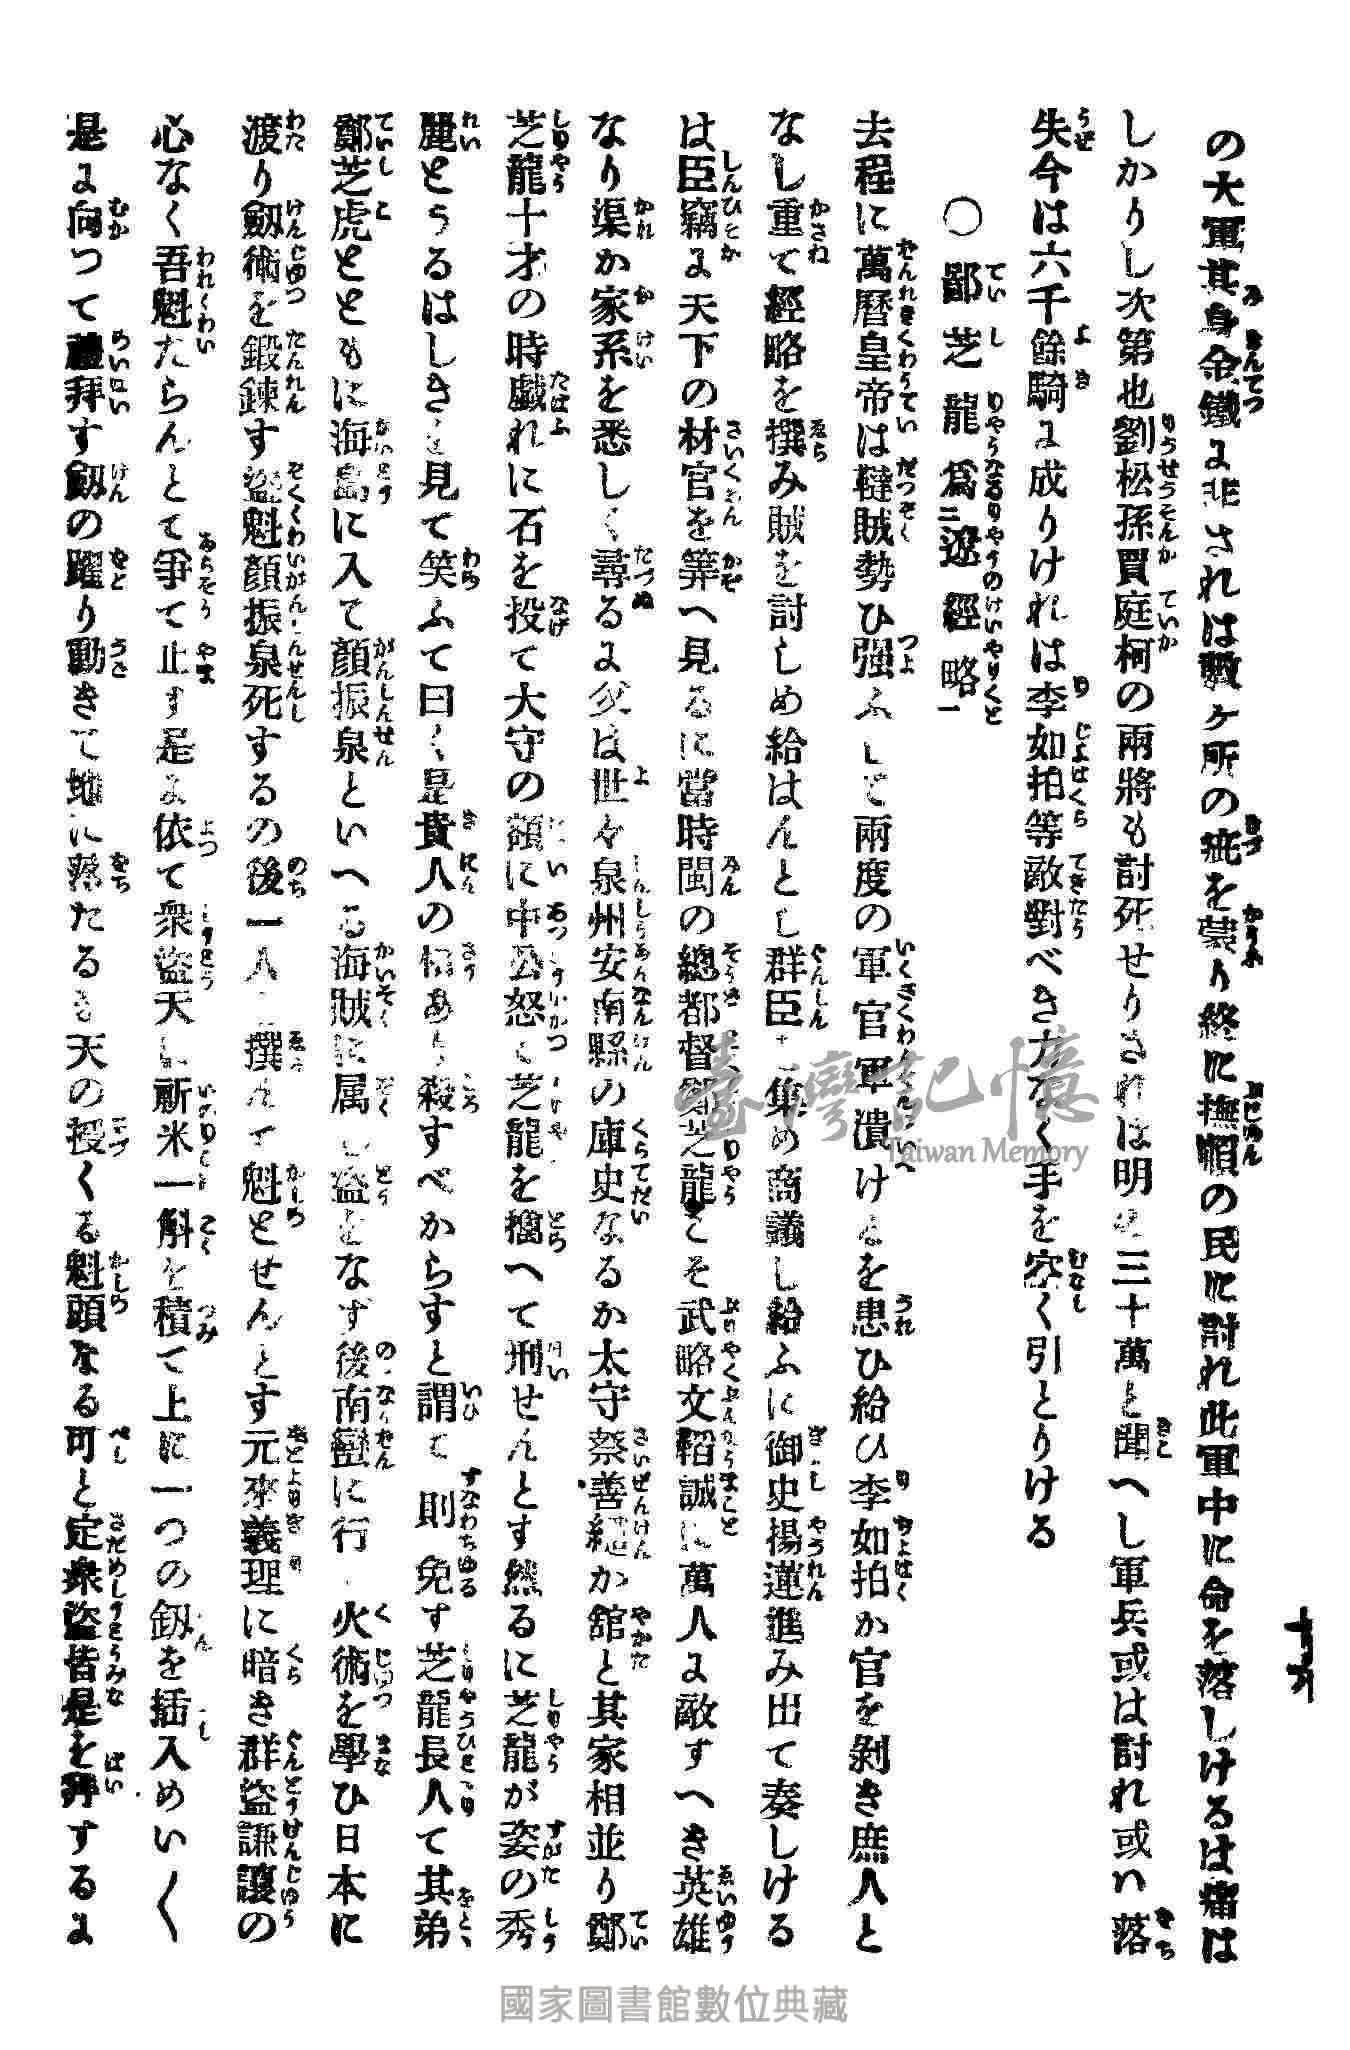 の大軍其身金鐵に非されは數ヶ所の疵を蒙り終に撫順の民に討れ此軍中に命を落しけるは痛は
しかりし次第也劉松孫買庭柯の兩將も討死せりされは明の三十萬と聞へし軍兵或は討れ或ハ落
失今は六千餘騎に成りけれは李如拍等敵對べき力なく手を空く引とりける
〇鄭芝龍爲二遼經略一
去程に萬曆皇帝は韃賊勢ひ强ふして兩度の軍官軍潰けるを患ひ給ひ李如拍か官を剝き庶人と
なし重て經略を撰み賊を討しめ給はんとし群臣を集め商議し給ふに御史揚蓮進み出て奏しける
は臣竊に天下の材官を筭へ見るに當時閩の總都督鄭芝龍こそ武略文韜誠に萬人に敵すへき英雄
なり渠か家系を悉しく尋るに父は世々泉州安南縣の庫史なるか太守祭善繼か舘と其家相並り鄭
芝龍十才の時戯れに石を投て大守の額に中公怒て芝龍を擒へて刑せんとす然るに芝龍が姿の秀
麗とうるはしきを見て笑ふて曰く是貴人の相あり殺すべからすと謂て則免す芝龍長人て其弟
鄭芝虎とともに海島に入て顔振泉といへる海賊に属し盗をなず後南蠻に行火術を學ひ日本に
渡り劔術を鍛錬す盜魁顔振泉死するの後一人を撰んて魁とせんとす元來義理に暗き群盜謙讓の
心なく吾魁たらんとて爭て止す是に依て衆盜天に祈米一斛を積て上に一つの釼を插入めい〱
是に向つて禮拜す劔の躍り動きて地に落たるを天の授くる魁頭なる可と定衆盜皆是を拜するに
十九
臺灣記憶
Taiwan Memory
國家圖書館數位典藏